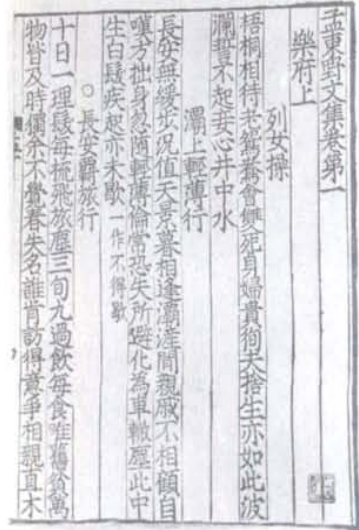 孟東野文集卷第一
樂府上
列女操
梧桐相待老鴛鴦會雙死貞婦貴狥夫捨生亦如此波
瀾誓不起妾心井中水
灞上輕薄行
長安無緩步況值天景暮相逢灞滻間親戚不相顧自
嘆方拙身忽隨輕薄倫常恐失所避化為車轍塵此中
生白髮疾起亦未歇一作不得歇
○長安羈旅行
十日一理髮每梳飛旅塵三旬九過飲每食唯舊貧萬
物皆及時獨余不覺春失名誰肯訪得意爭相親直木